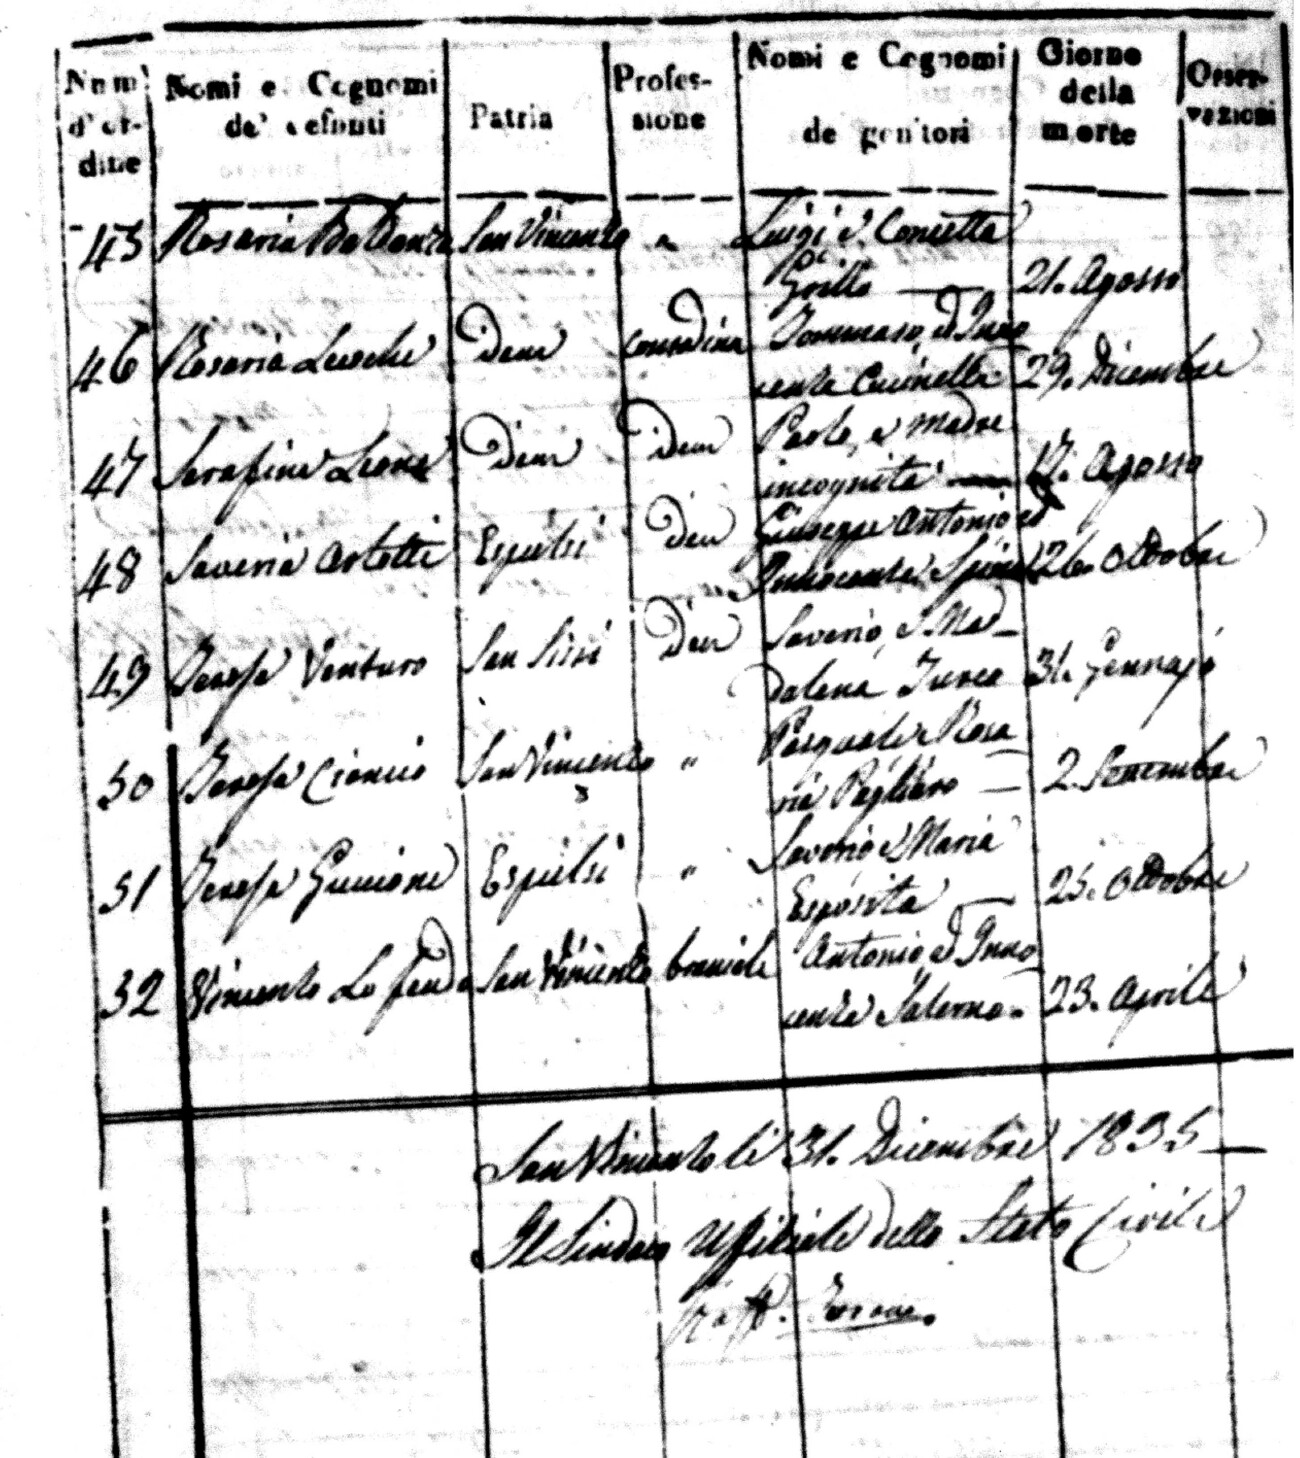 Num° d'or- dine | Nomi e Cognomi de' defunti | Patria | Profes- sione | Nomi e Cognomi de genitori | Giorno della morte | Osser- vazioni
45 Rosaria Baldanza San Vincenzo " Luigi e Concetta
Grillo — 21. Agosto
46 Rosaria Leschi Idem contadina Tommaso, ed Inno
cenza Cucinella 29. Dicembre
47 Serafina Leone Idem idem Paolo, e madre
incognita — 17. Agosto
48 Saveria Arlotti Espulsi Idem Giuseppe Antonio ed
Innocenza 26. Ottobre
49 Teresa Venturo San Sisti Idem Saverio, e Mad-
dalena Turco 31. Gennajo
50 Teresa Ciancio San Vincenzo " Pasquale e Rosa
ria Pagliaro — 2. Settembre
51 Teresa Guccione Espulsi " Saverio e Maria
Esposita — 25. Ottobre
52 Vincenzo Lo San Vincenzo bracciale Antonio ed Inno
cenza Salerno - 23. Aprile
San Vincenzo li 31. Dicembre 1835 —
Il Sindaco Uffiziale dello Stato Civile
Raff.